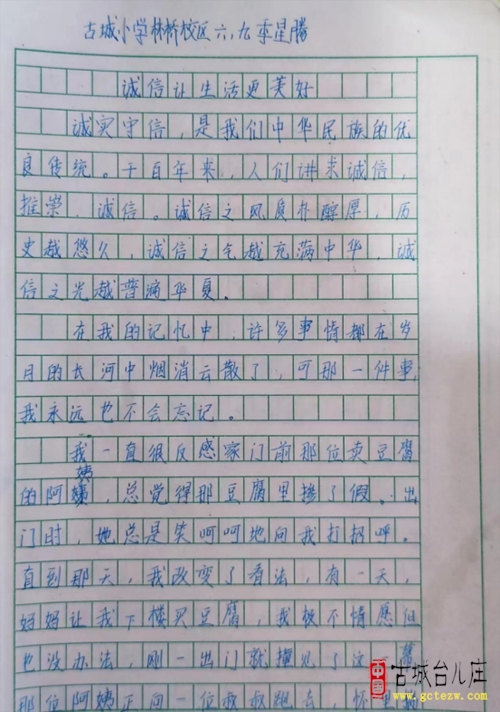 古城小学林桥校区六,九李星腾
诚信让生活更美好
诚实守信，是我们中华民族的优
良传统。千百年来，人们讲求诚信，
推崇，诚信。诚信之风质朴醇厚，历
史越悠久，诚信之气越充满中华，诚
信之光越普滴华夏。
在我的记忆中，许多事情都在岁
月的长河中烟消云散了，可那一件事，
我永远也不会忘记。
我一直很反感家门前那位卖豆腐
的阿姨，总觉得那豆腐里掺了假。出
门时，她总是笑呵呵地向我打招呼。
直到那天，我改变了看法，有一天，
妈妈让我下楼买豆腐，我极不情愿但
也没办法，刚一出门就撞见了这一幕
那位阿姨正向一位叔叔跑去，怀里
中国 古城台儿庄
www.gctezw.com